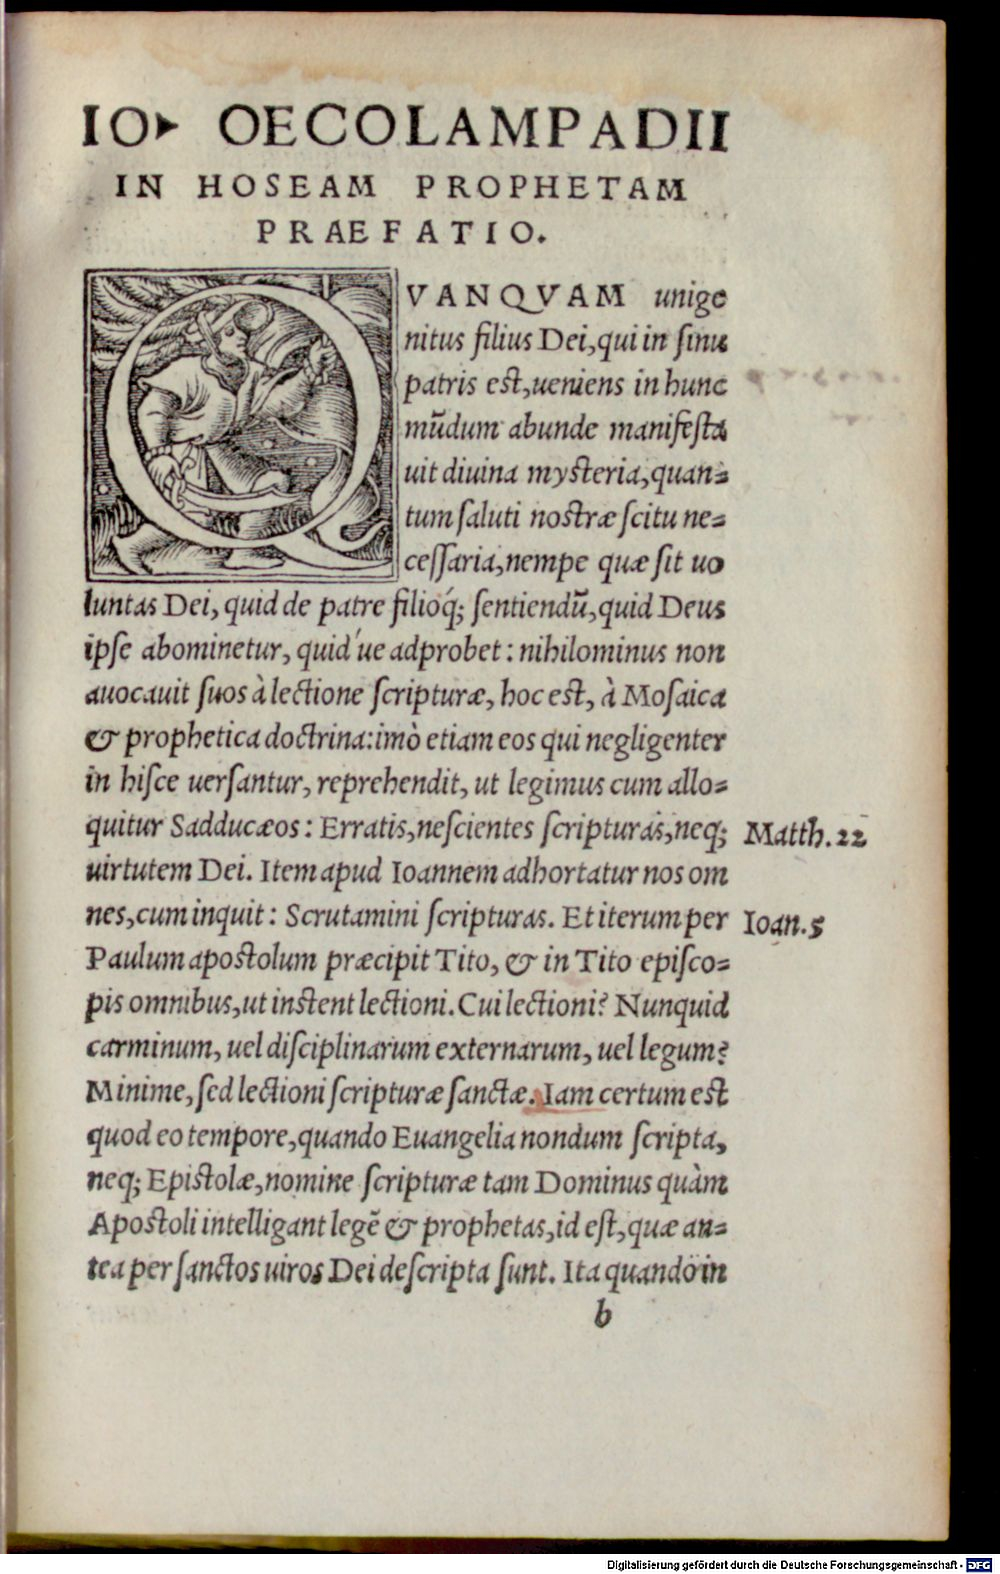 IO. OECOLAMPADII
IN HOSEAM PROPHETAM
PRAEFATIO.
QVANQVAM unige
nitus filius Dei, qui in sinu
patris est, ueniens in hunc
mũdum abunde manifesta
uit diuina mysteria, quan=
tum saluti nostræ scitu ne=
cessaria, nempe quæ sit uo
luntas Dei, quid de patre filioq́; sentiendũ, quid Deus
ipse abominetur, quid́ue adprobet: nihilominus non
auocauit suos à lectione scripturæ, hoc est, à Mosaica
& prophetica doctrina: imò etiam eos qui negligenter
in hisce uersantur, reprehendit, ut legimus cum allo=
quitur Sadducæos: Erratis, nescientes scripturas, neq;
Matth. 22
uirtutem Dei. Item apud Ioannem adhortatur nos om
nes, cum inquit: Scrutamini scripturas. Et iterum per
Ioan. 5
Paulum apostolum præcipit Tito, & in Tito episco=
pis omnibus, ut instent lectioni. Cui lectioni? Nunquid
carminum, uel disciplinarum externarum, uel legum?
Minime, sed lectioni scripturæ sanctæ. Iam certum est
quod eo tempore, quando Euangelia nondum scripta,
neq; Epistolæ, nomine scripturæ tam Dominus quàm
Apostoli intelligant legẽ & prophetas, id est, quæ an=
tea per sanctos uiros Dei descripta sunt. Ita quando in
b
Digitalisierung gefördert durch die Deutsche Forschungsgemeinschaft - DFG